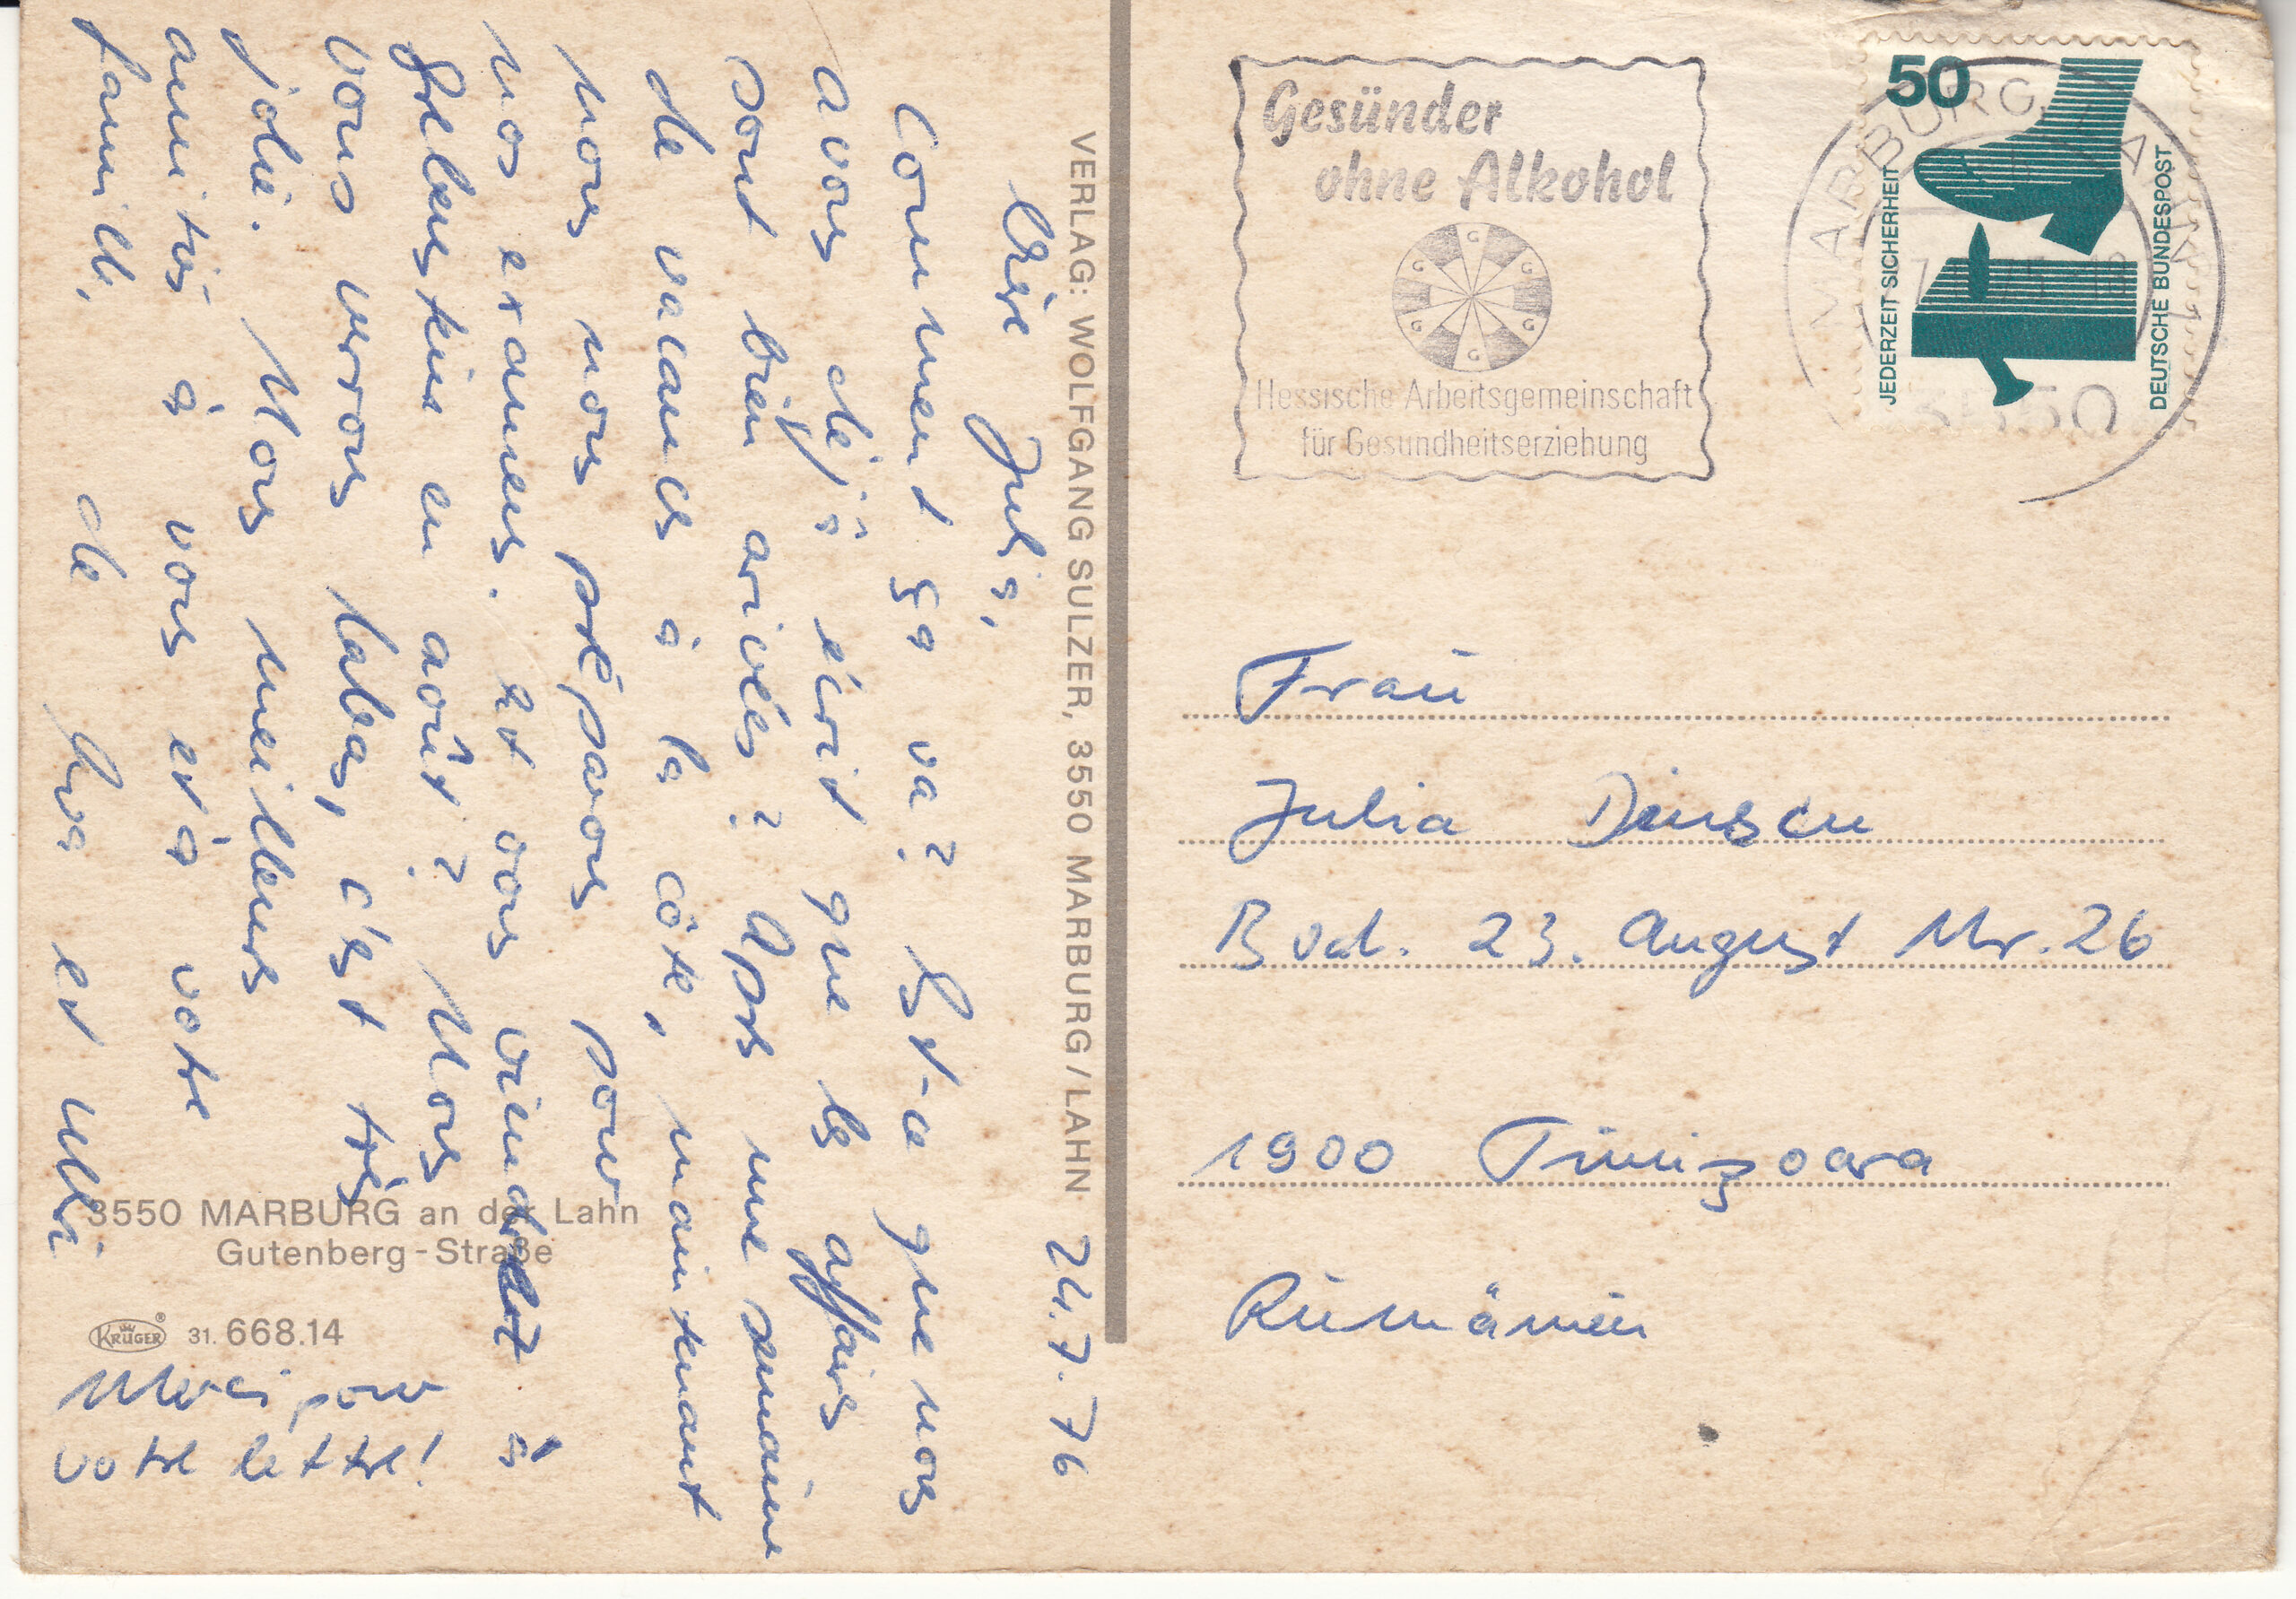 24.7.76
Chère Julia,
Comment ça va? Est-ce que nous
avons déjà écrit que les affaires
sont bien arivées? Après une semaine
de vacances à la côte, maintenant
nous nous préparons pour
nos examens. Et vous viendrez à
Folkestein en août? Nous
vous verrons labas, c'est très
jolie. Nous meilleurs
amitiés à vous et à votre
famille, de Eva et Ulli
Merci pour
votre lettre!
VERLAG: WOLFGANG SULZER, 3550 MARBURG/LAHN
3550 MARBURG an der Lahn
Gutenberg-Straße
KRÜGER 31. 668.14
Gesünder
ohne Alkohol
Hessische Arbeitsgemeinschaft
für Gesundheitserziehung
MARBURG, LAHN
50
JEDERZEIT SICHERHEIT
DEUTSCHE BUNDESPOST
Frau
Julia
Bvd. 23. August Nr. 26
1900 Timişoara
Rumänien